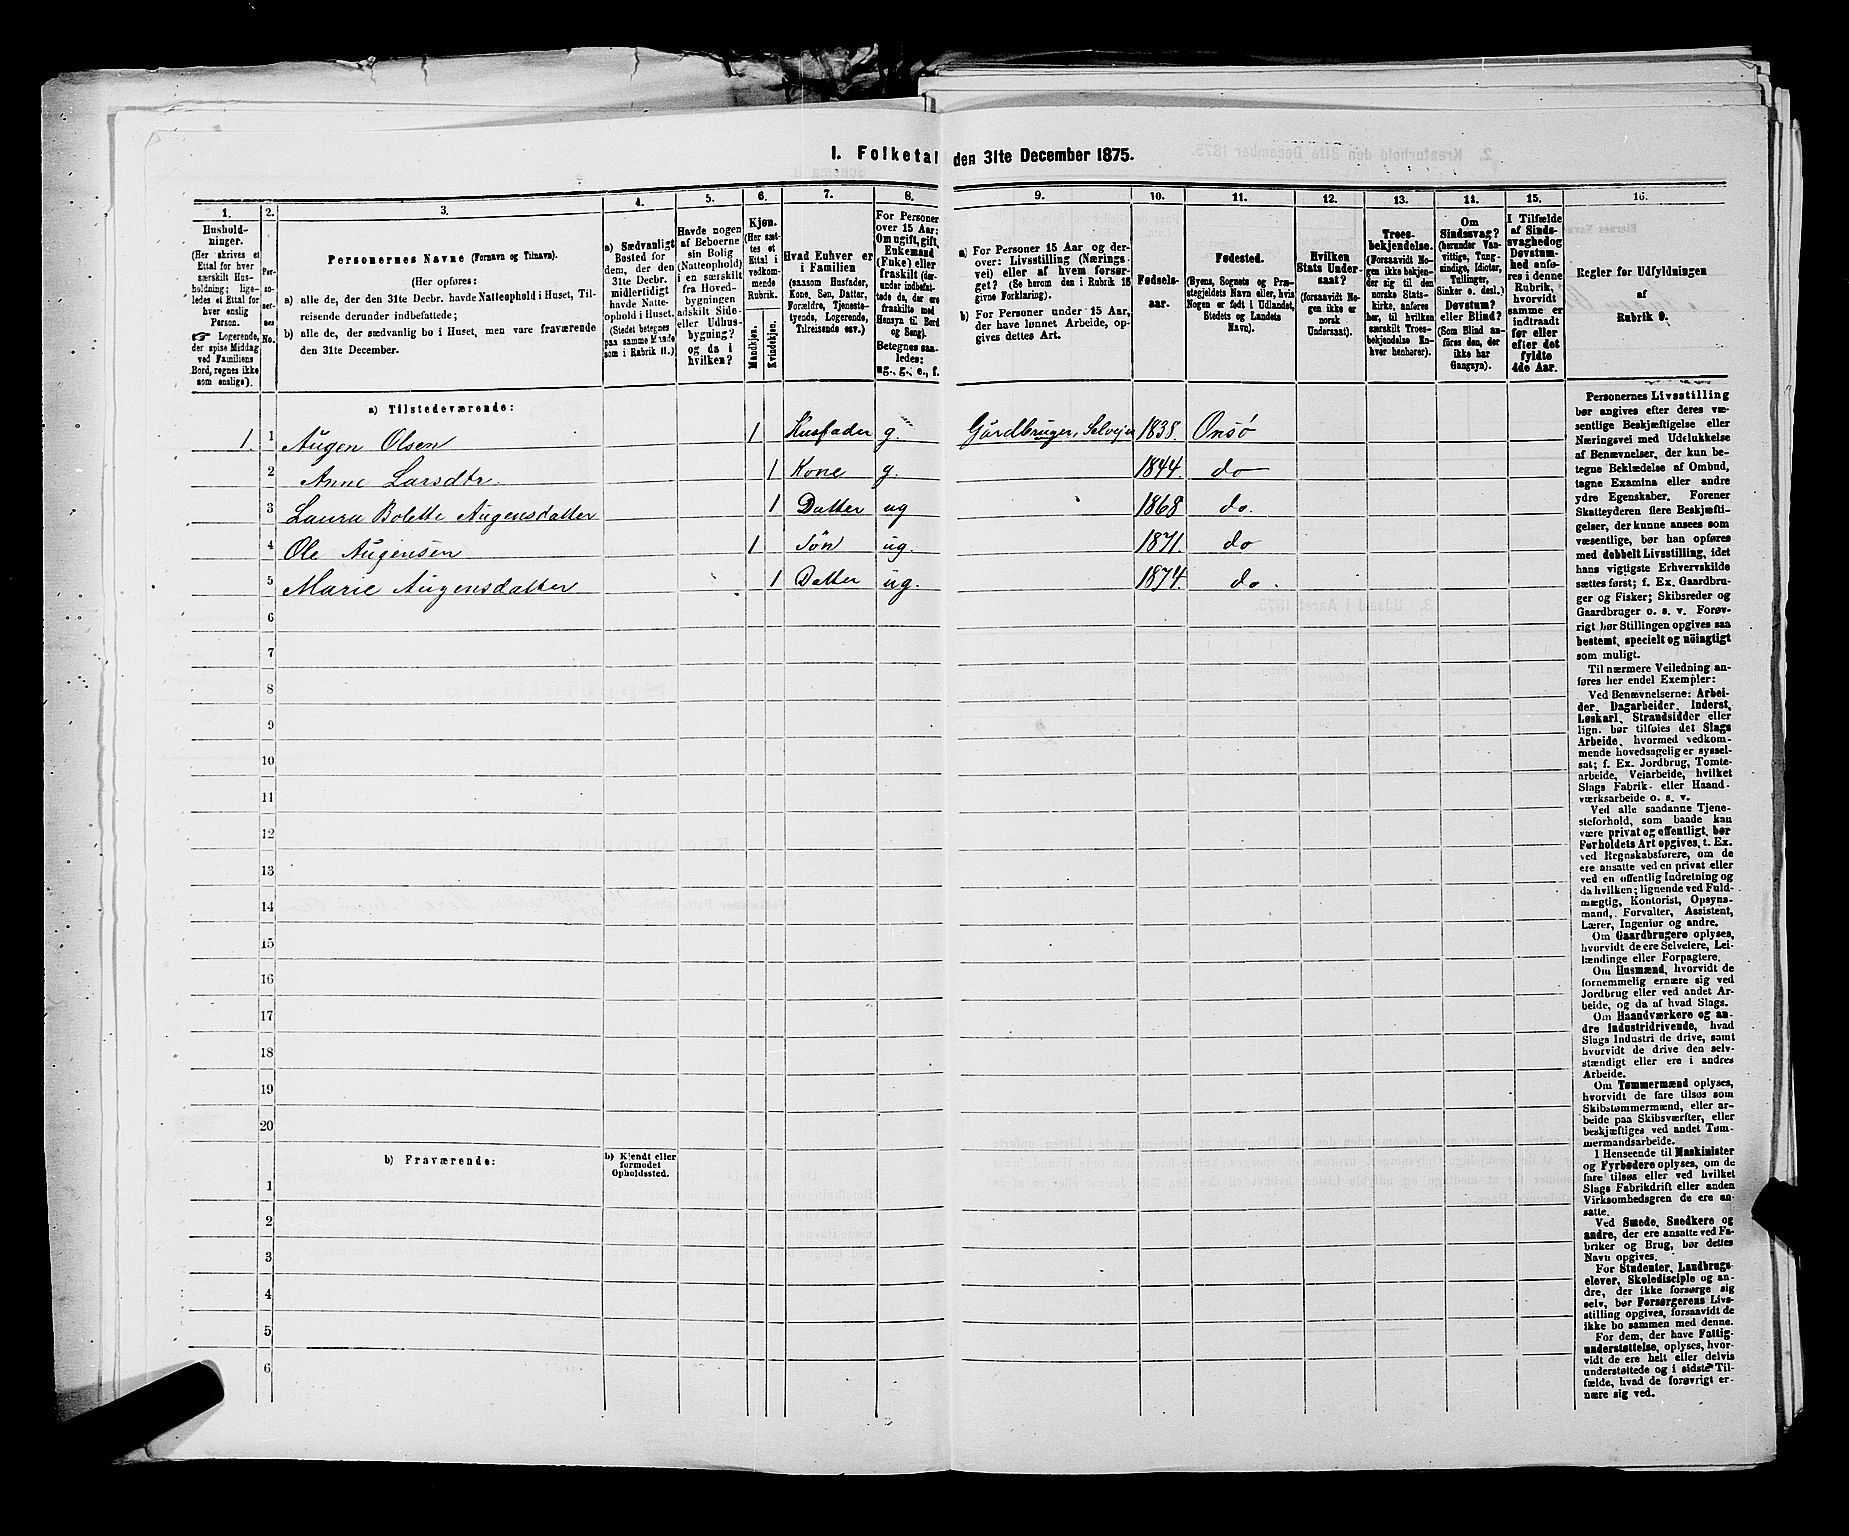 I. Folketal den 31te December 1875.
1.
Hushold-
ninger.
(Her skrives et
Ettal for hver
særskilt Hus-
holdning; lige-
ledes et Ettal for
hver enslig
Person.
☞ Logerende,
der spise Middag
ved Familiens
Bord, regnes ikke
som enslige).
2.
Per-
soner-
nes
No.
3.
Personernes Navne (Fornavn og Tilnavn).
(Her opføres:
a) alle de, der den 31te Decbr. havde Natteophold i Huset, Til-
reisende derunder indbefattede;
b) alle de, der sædvanlig bo i Huset, men vare fraværende
den 31te December.
4.
a) Sædvanligt
Bosted for
dem, der den
31te Decbr.
midlertidigt
havde Natte-
ophold i Huset.
(Stedet betegnes
paa samme Maade
som i Rubrik 11.)
5.
Havde nogen
af Beboerne
sin Bolig
(Natteophold)
i en særskilt
fra Hoved-
bygningen
adskilt Side-
eller Udhus-
bygning?
og da i
hvilken?
6.
Kjøn.
(Her sæt-
tes et
Ettal i
vedkom-
mende
Rubrik.
Mandkjøn.
Kvindekjøn.
7.
Hvad Enhver er
i Familien
(saasom Husfader,
Kone, Søn, Datter,
Forældre, Tjeneste-
tyende, Logerende,
Tilreisende osv.)
8.
For Personer
over 15 Aar:
Om ugift, gift,
Enkemand
(Enke) eller
fraskilt (der-
under indbefat-
tede de, der ere
fraskilte med
Hensyn til Bord
og Seng).
Betegnes saa-
ledes:
ug., g., e., f.
9.
a) For Personer 15 Aar og der-
over: Livsstilling (Nærings-
vei) eller af hvem forsør-
get? (Se herom den i Rubrik 16
givne Forklaring).
b) For Personer under 15 Aar,
der have lønnet Arbeide, op-
gives dettes Art.
10.
Fødsels-
aar.
11.
Fødested.
(Byens, Sognets og Præ-
stegjeldets Navn eller, hvis
Nogen er født i Udlandet,
Stedets og Landets
Navn).
12.
Hvilken
Stats Under-
saat?
(forsaavidt No-
gen ikke er
norsk
Undersaat).
13.
Troes-
bekjendelse.
(Forsaavidt No-
gen ikke bekjen-
der sig til den
norske Stats-
kirke, anføres
her, til hvilken
særskilt Troes-
bekjendelse En-
hver henhører).
14.
Om
Sindssvag?
(herunder Van-
vittige, Tung-
sindige, Idioter,
Tullinger,
Sinker o. desl.)
Døvstum?
eller Blind?
(Som Blind an-
føres den, der
ikke har
Gangsyn).
15.
I Tilfælde
af Sinds-
svaghed og
Døvstum-
hed anfø-
res i denne
Rubrik,
hvorvidt
samme er
indtraadt
før eller
efter det
fyldte
4de Aar.
16.
Regler for Udfyldningen
af
Rubrik 9.
a) Tilstedeværende:
1. 1 Augen Olsen 1 Husfader g. Gårdbruger, Selvejer 1838. Onsø
2 Anne Larsdtr. 1 Kone g. 1844. do
3 Laura Bolette Augensdatter 1 Datter ug 1868 do.
4 Ole Augensen 1 Søn ug. 1871. do
5 Marie Augensdatter 1 Datter ug. 1874. do.
6
7
8
9
10
11
12
13
14
15
16
17
18
19
20
b) Fraværende:
b) Kjendt eller
formodet
Opholdssted.
1
2
3
4
5
6
Personernes Livsstilling
bør angives efter deres væ-
sentlige Beskjæftigelse eller
Næringsvei med Udelukkelse
af Benævnelser, der kun be-
tegne Beklædelse af Ombud,
tagne Examina eller andre
ydre Egenskaber. Forener
Skatteyderen flere Beskjæfti-
gelser, der kunne ansees som
væsentlige, bør han opføres
med dobbelt Livsstilling, idet
hans vigtigste Erhvervskilde
sættes først; f. Ex. Gaardbru-
ger og Fisker; Skibsreder og
Gaardbruger o. s. v. Forøv-
rigt bør Stillingen opgives saa
bestemt, specielt og nöiagtigt
som muligt.
Til nærmere Veiledning an-
føres her endel Exempler:
Ved Benævnelserne: Arbei-
der, Dagarbeider, Inderst,
Løskarl, Strandsidder eller
lign. bør tilføies det Slags
Arbeide, hvormed vedkom-
mende hovedsagelig er syssel-
sat; f. Ex. Jordbrug, Tomte-
arbeide, Veiarbeide, hvilket
Slags Fabrik- eller Haand-
værksarbeide o. s. v.
Ved alle saadanne Tjene-
steforhold, som baade kan
være privat og offentligt, bør
Forholdets Art opgives, t. Ex.
ved Regnskabsførere, om de
ere ansatte ved en privat eller
ved en offentlig Indretning og
da hvilken; lignende ved Fuld-
mægtig, Kontorist, Opsyns-
mand, Forvalter, Assistent,
Lærer, Ingeniør og andre.
Om Gaardbrugere oplyses,
hvorvidt de ere Selveiere, Lei-
lændinge eller Forpagtere.
Om Husmænd, hvorvidt de
fornemmelig ernære sig ved
Jordbrug eller ved andet Ar-
beide, og da af hvad Slags.
Om Haandværkere og an-
dre industridrivende, hvad
Slags Industri de drive, samt
hvorvidt de drive den selv-
stændigt eller ere i andres
Arbeide.
Om Tømmermænd oplyses,
hvorvidt de fare tilsøs som
Skibstømmermænd, eller ar-
beide paa Skibsværfter, eller
beskjæftiges ved andet Tøm-
mermandsarbeide.
I Henseende til Maskinister
og Fyrbødere oplyses, om de
fare tilsøs eller ved hvilket
Slags Fabrikdrift eller anden
Virksomhedsgren de ere an-
satte.
Ved Smede, Snedkere og
andre, der ere ansatte ved Fa-
briker og Brug, bør dettes
Navn opgives.
For Studenter, Landbrugs-
elever, Skoledisciple og an-
dre, der ikke forsørge sig
selv, bør Forsørgerens Livs-
stilling opgives, forsaavidt de
ikke bo sammen med denne.
For dem, der have Fattig-
understøttelse, oplyses, hvor-
vidt de ere helt eller delvis
understøttede og i sidste Til-
fælde, hvad de forøvrigt er-
nære sig ved.